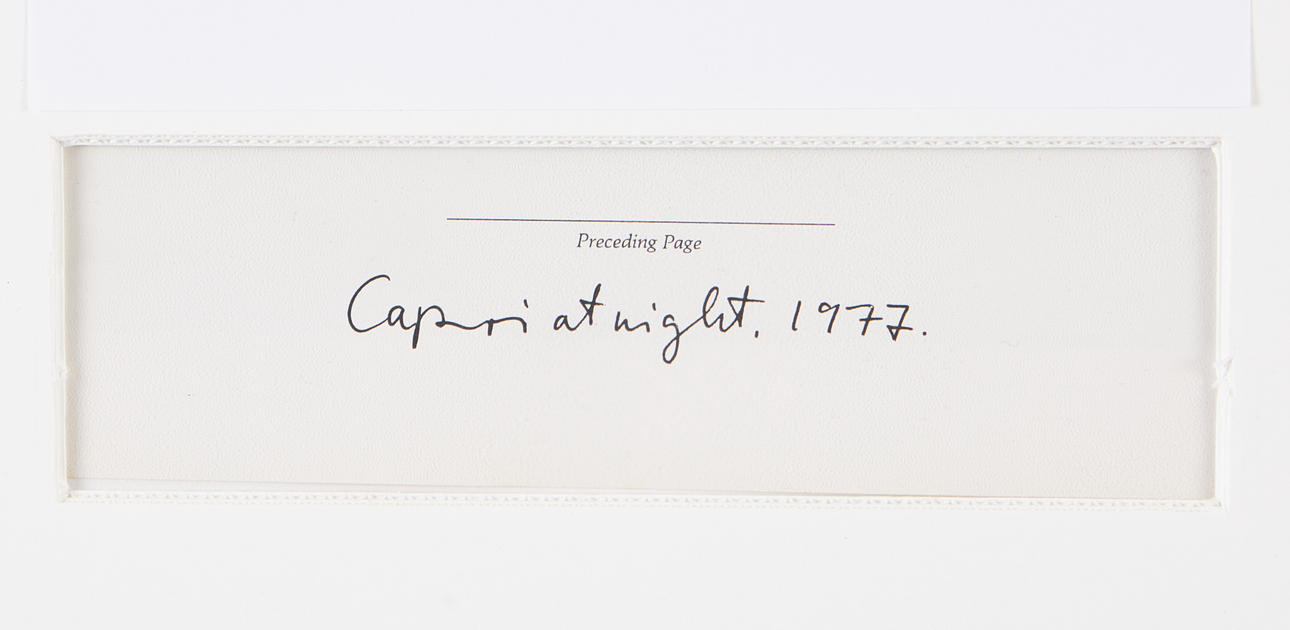 Preceding Page
Capri at night. 1977.